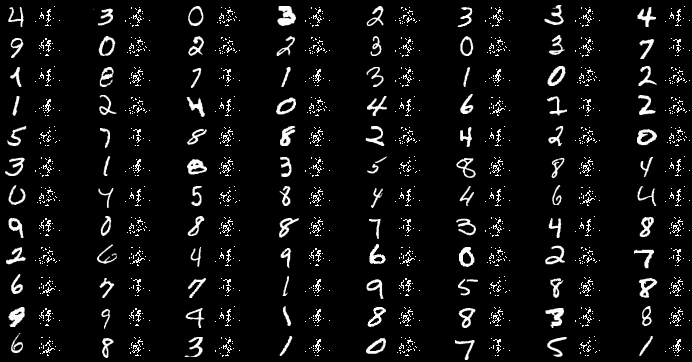 4 3 0 3 2 3 3 4
9 0 2 2 3 0 3 7
1 8 7 1 3 1 0 2
1 2 4 0 4 6 1 2
5 7 8 8 2 4 2 0
3 1 8 3 5 8 8 4
0 4 5 8 4 4 6 4
9 0 8 8 7 3 4 8
2 6 4 9 6 0 2 7
6 7 7 1 9 5 8 8
9 9 4 1 8 8 3 8
6 8 3 1 0 7 5 1